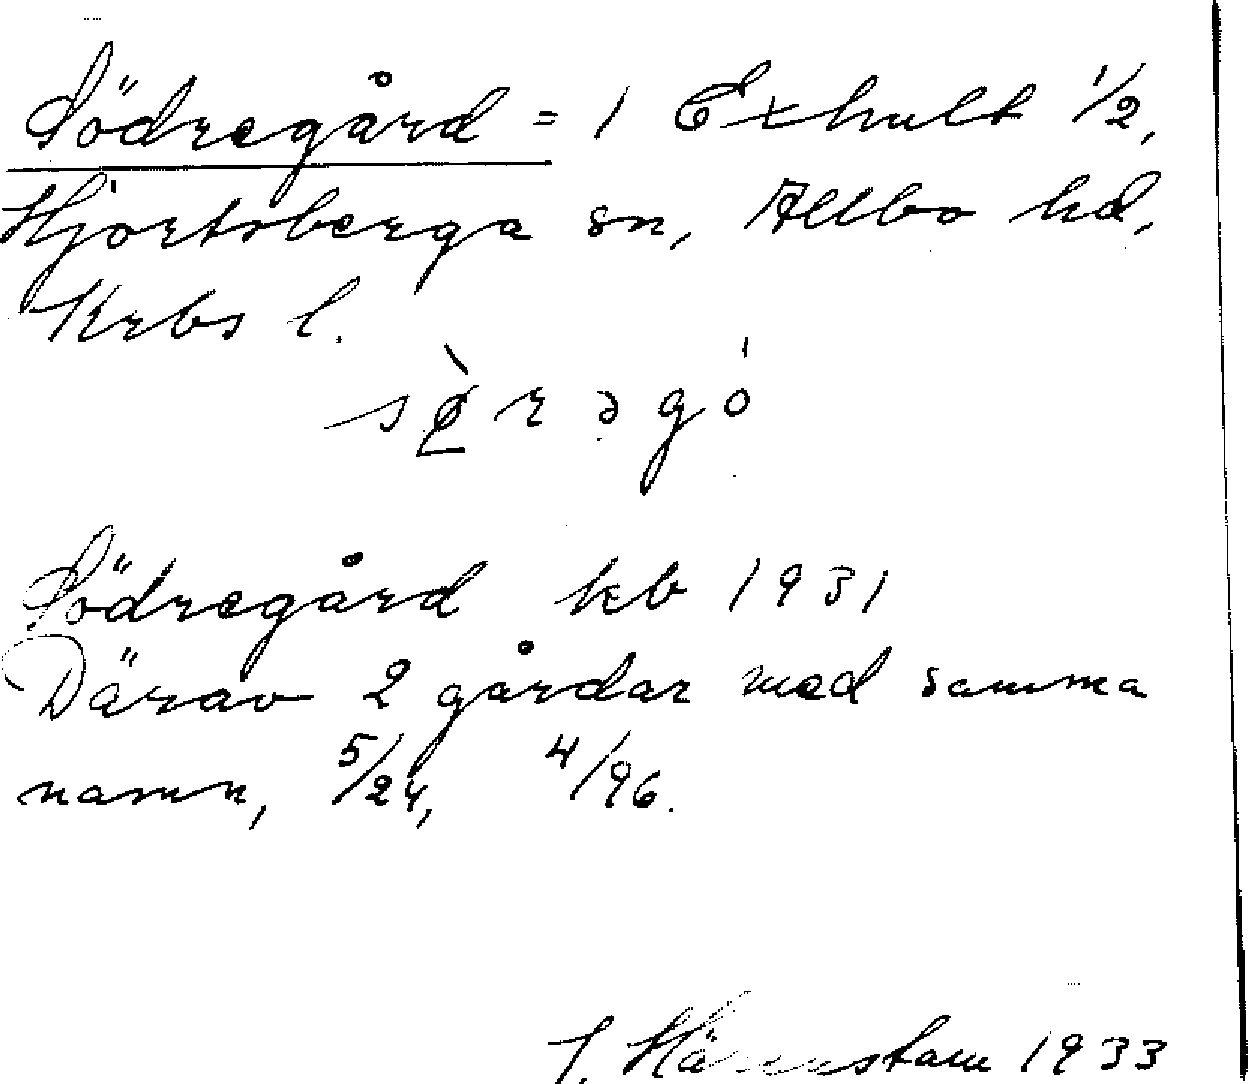 Södregård = 1 Exhult 1/2,
Hjortsberga sn, Allbo hd,
Krbs l.
sø̀rəgó
Södregård kb 1931
Därav 2 gårdar med samma
namn, 5/24, 4/96.
J. 1933